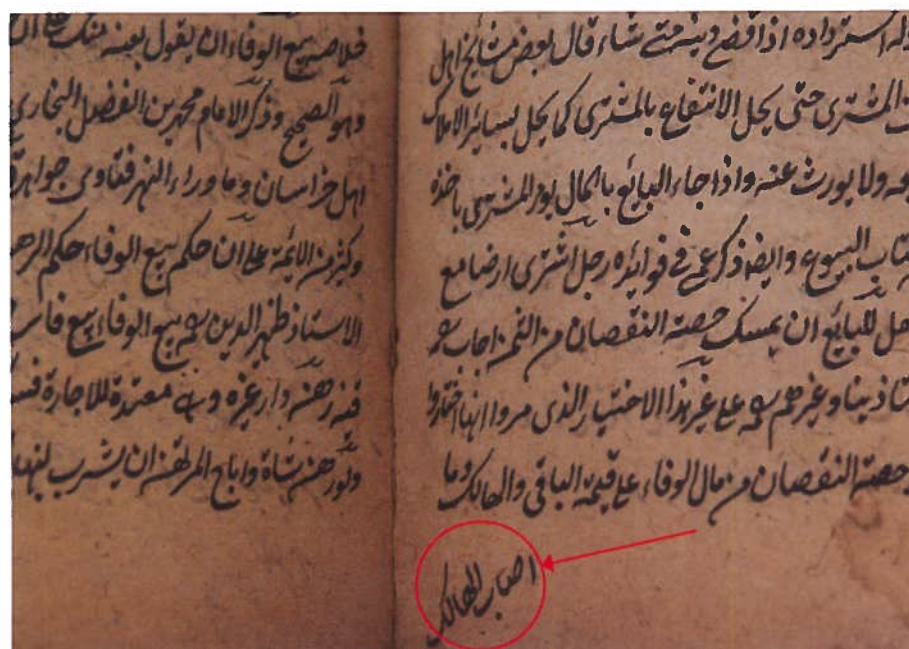 وله استرداده اذا قضى دينه متى شاء قال بعض مشايخ اهل
المشترى حتى يحل الانتفاع بالمشترى كما يحل بسائر الاملاك
ولا يورث عنه واذا جاء البايع بالمال يؤمر المشترى باخذه
كتاب البيوع وايضا ذكر عمى في فوائده رجل اشترى ارضا مع
للبايع ان يمسك حصة النقصان من الثمن اجاب
وغيرهم على غير هذا الاختيار الذى مر
حصة النقصان من مال الوفاء على قيمة الباقى والهالك وما
اصاب الهالك
بيع الوفاء ان يقول بعته منك على ان
وهو الصحيح وذكر الامام محمد بن الفضل البخارى
اهل خراسان وما وراء النهر فتاوى
وكثير من الائمة على ان حكم بيع الوفاء حكم
الاستاذ ظهير الدين بيع الوفاء بيع
دار غيره معتدة للاجارة
ولو رهن شاة واباح المرتهن ان يشرب